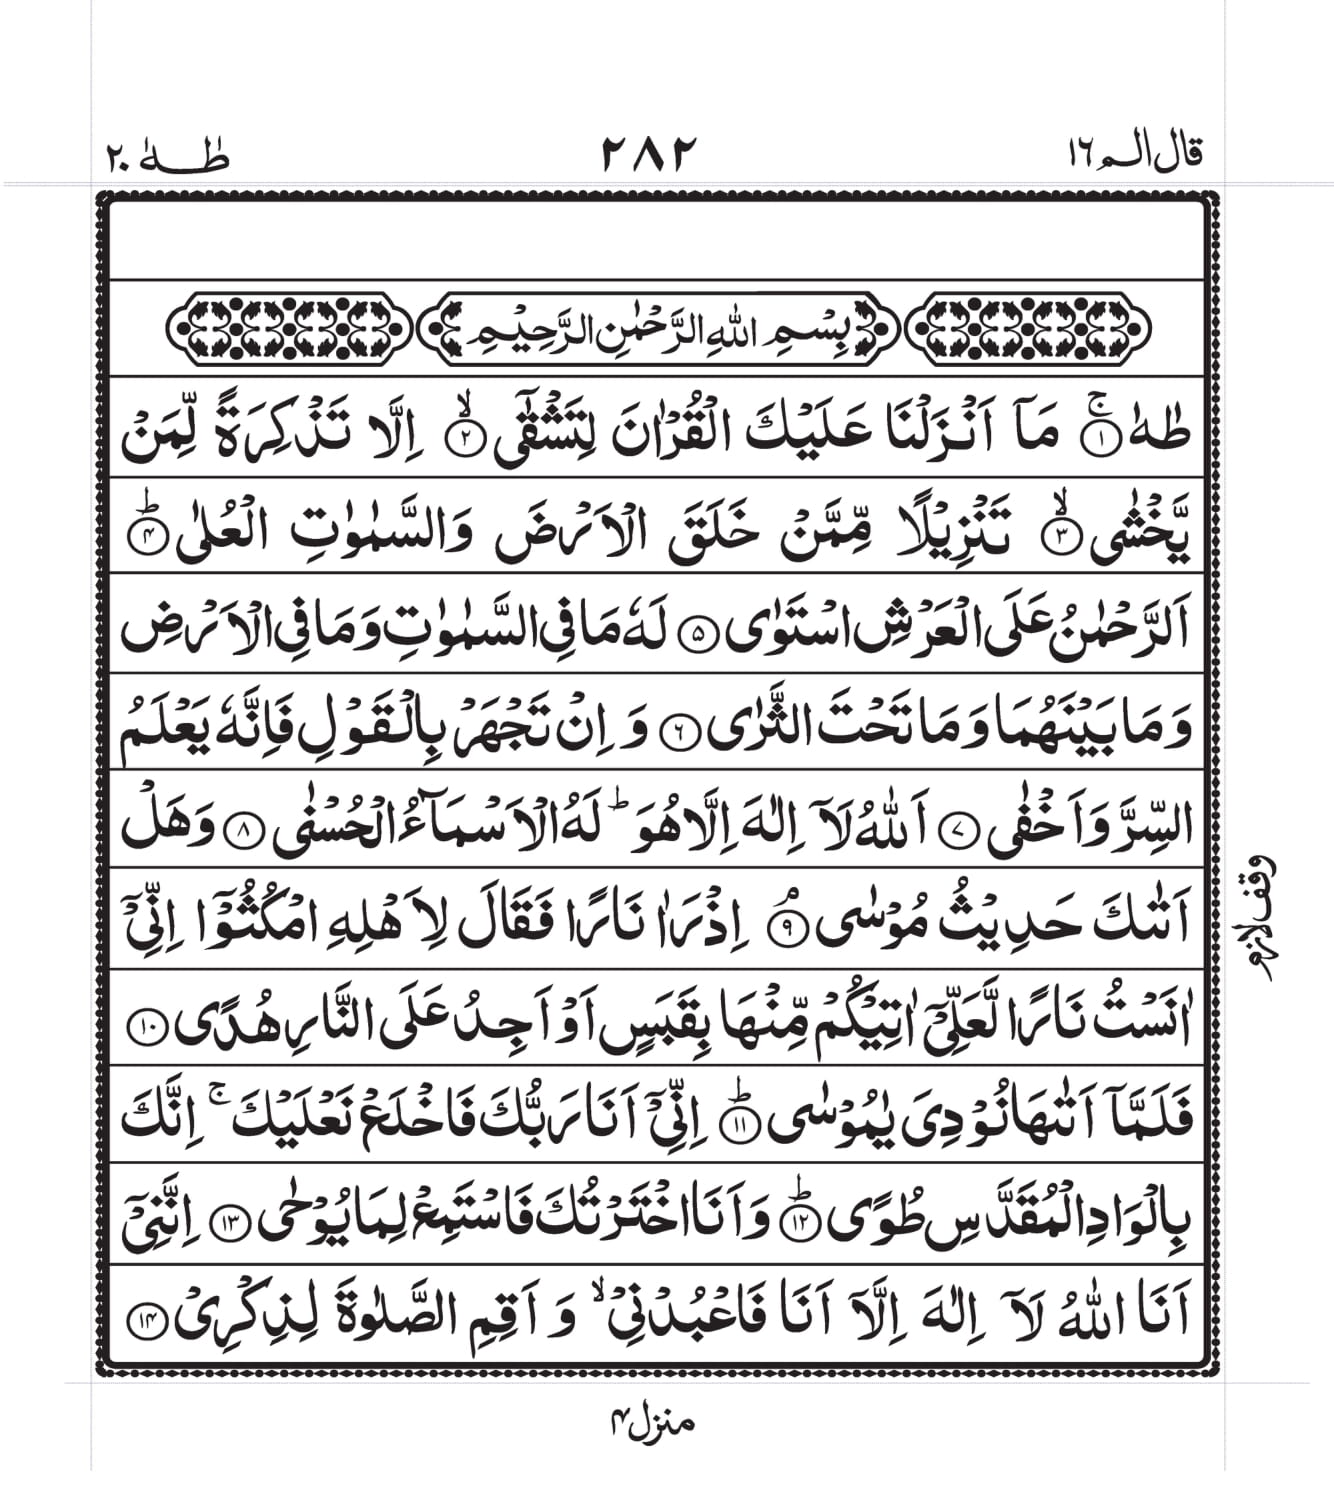 قال الم ١٦
٢٨٢
طٰهٰ ٢٠
بِسْمِ اللهِ الرَّحْمٰنِ الرَّحِيْمِ
طٰهٰ ۚ﴿۱﴾ مَاۤ اَنْزَلْنَا عَلَيْكَ الْقُرْاٰنَ لِتَشْقٰۤى ۙ﴿۲﴾ اِلَّا تَذْكِرَةً لِّمَنْ
يَّخْشٰى ۙ﴿۳﴾ تَنْزِيْلًا مِّمَّنْ خَلَقَ الْاَرْضَ وَالسَّمٰوٰتِ الْعُلٰى ؕ﴿۴﴾
اَلرَّحْمٰنُ عَلَى الْعَرْشِ اسْتَوٰى ﴿۵﴾ لَهٗ مَا فِى السَّمٰوٰتِ وَمَا فِى الْاَرْضِ
وَمَا بَيْنَهُمَا وَمَا تَحْتَ الثَّرٰى ﴿۶﴾ وَ اِنْ تَجْهَرْ بِالْقَوْلِ فَاِنَّهٗ يَعْلَمُ
السِّرَّ وَاَخْفٰى ﴿۷﴾ اَللّٰهُ لَاۤ اِلٰهَ اِلَّا هُوَ ؕ لَهُ الْاَسْمَآءُ الْحُسْنٰى ﴿۸﴾ وَهَلْ
اَتٰىكَ حَدِيْثُ مُوْسٰى ۘ﴿۹﴾ اِذْ رَاٰ نَارًا فَقَالَ لِاَهْلِهِ امْكُثُوْۤا اِنِّىْۤ
اٰنَسْتُ نَارًا لَّعَلِّىْۤ اٰتِيْكُمْ مِّنْهَا بِقَبَسٍ اَوْ اَجِدُ عَلَى النَّارِ هُدًى ﴿۱۰﴾
فَلَمَّاۤ اَتٰىهَا نُوْدِىَ يٰمُوْسٰى ؕ﴿۱۱﴾ اِنِّىْۤ اَنَا رَبُّكَ فَاخْلَعْ نَعْلَيْكَ ۚ اِنَّكَ
بِالْوَادِ الْمُقَدَّسِ طُوًى ؕ﴿۱۲﴾ وَاَنَا اخْتَرْتُكَ فَاسْتَمِعْ لِمَا يُوْحٰى ﴿۱۳﴾ اِنَّنِىْۤ
اَنَا اللّٰهُ لَاۤ اِلٰهَ اِلَّاۤ اَنَا فَاعْبُدْنِىْ ۙ وَ اَقِمِ الصَّلٰوةَ لِذِكْرِىْ ﴿۱۴﴾
وقف لازم
منزل ۴